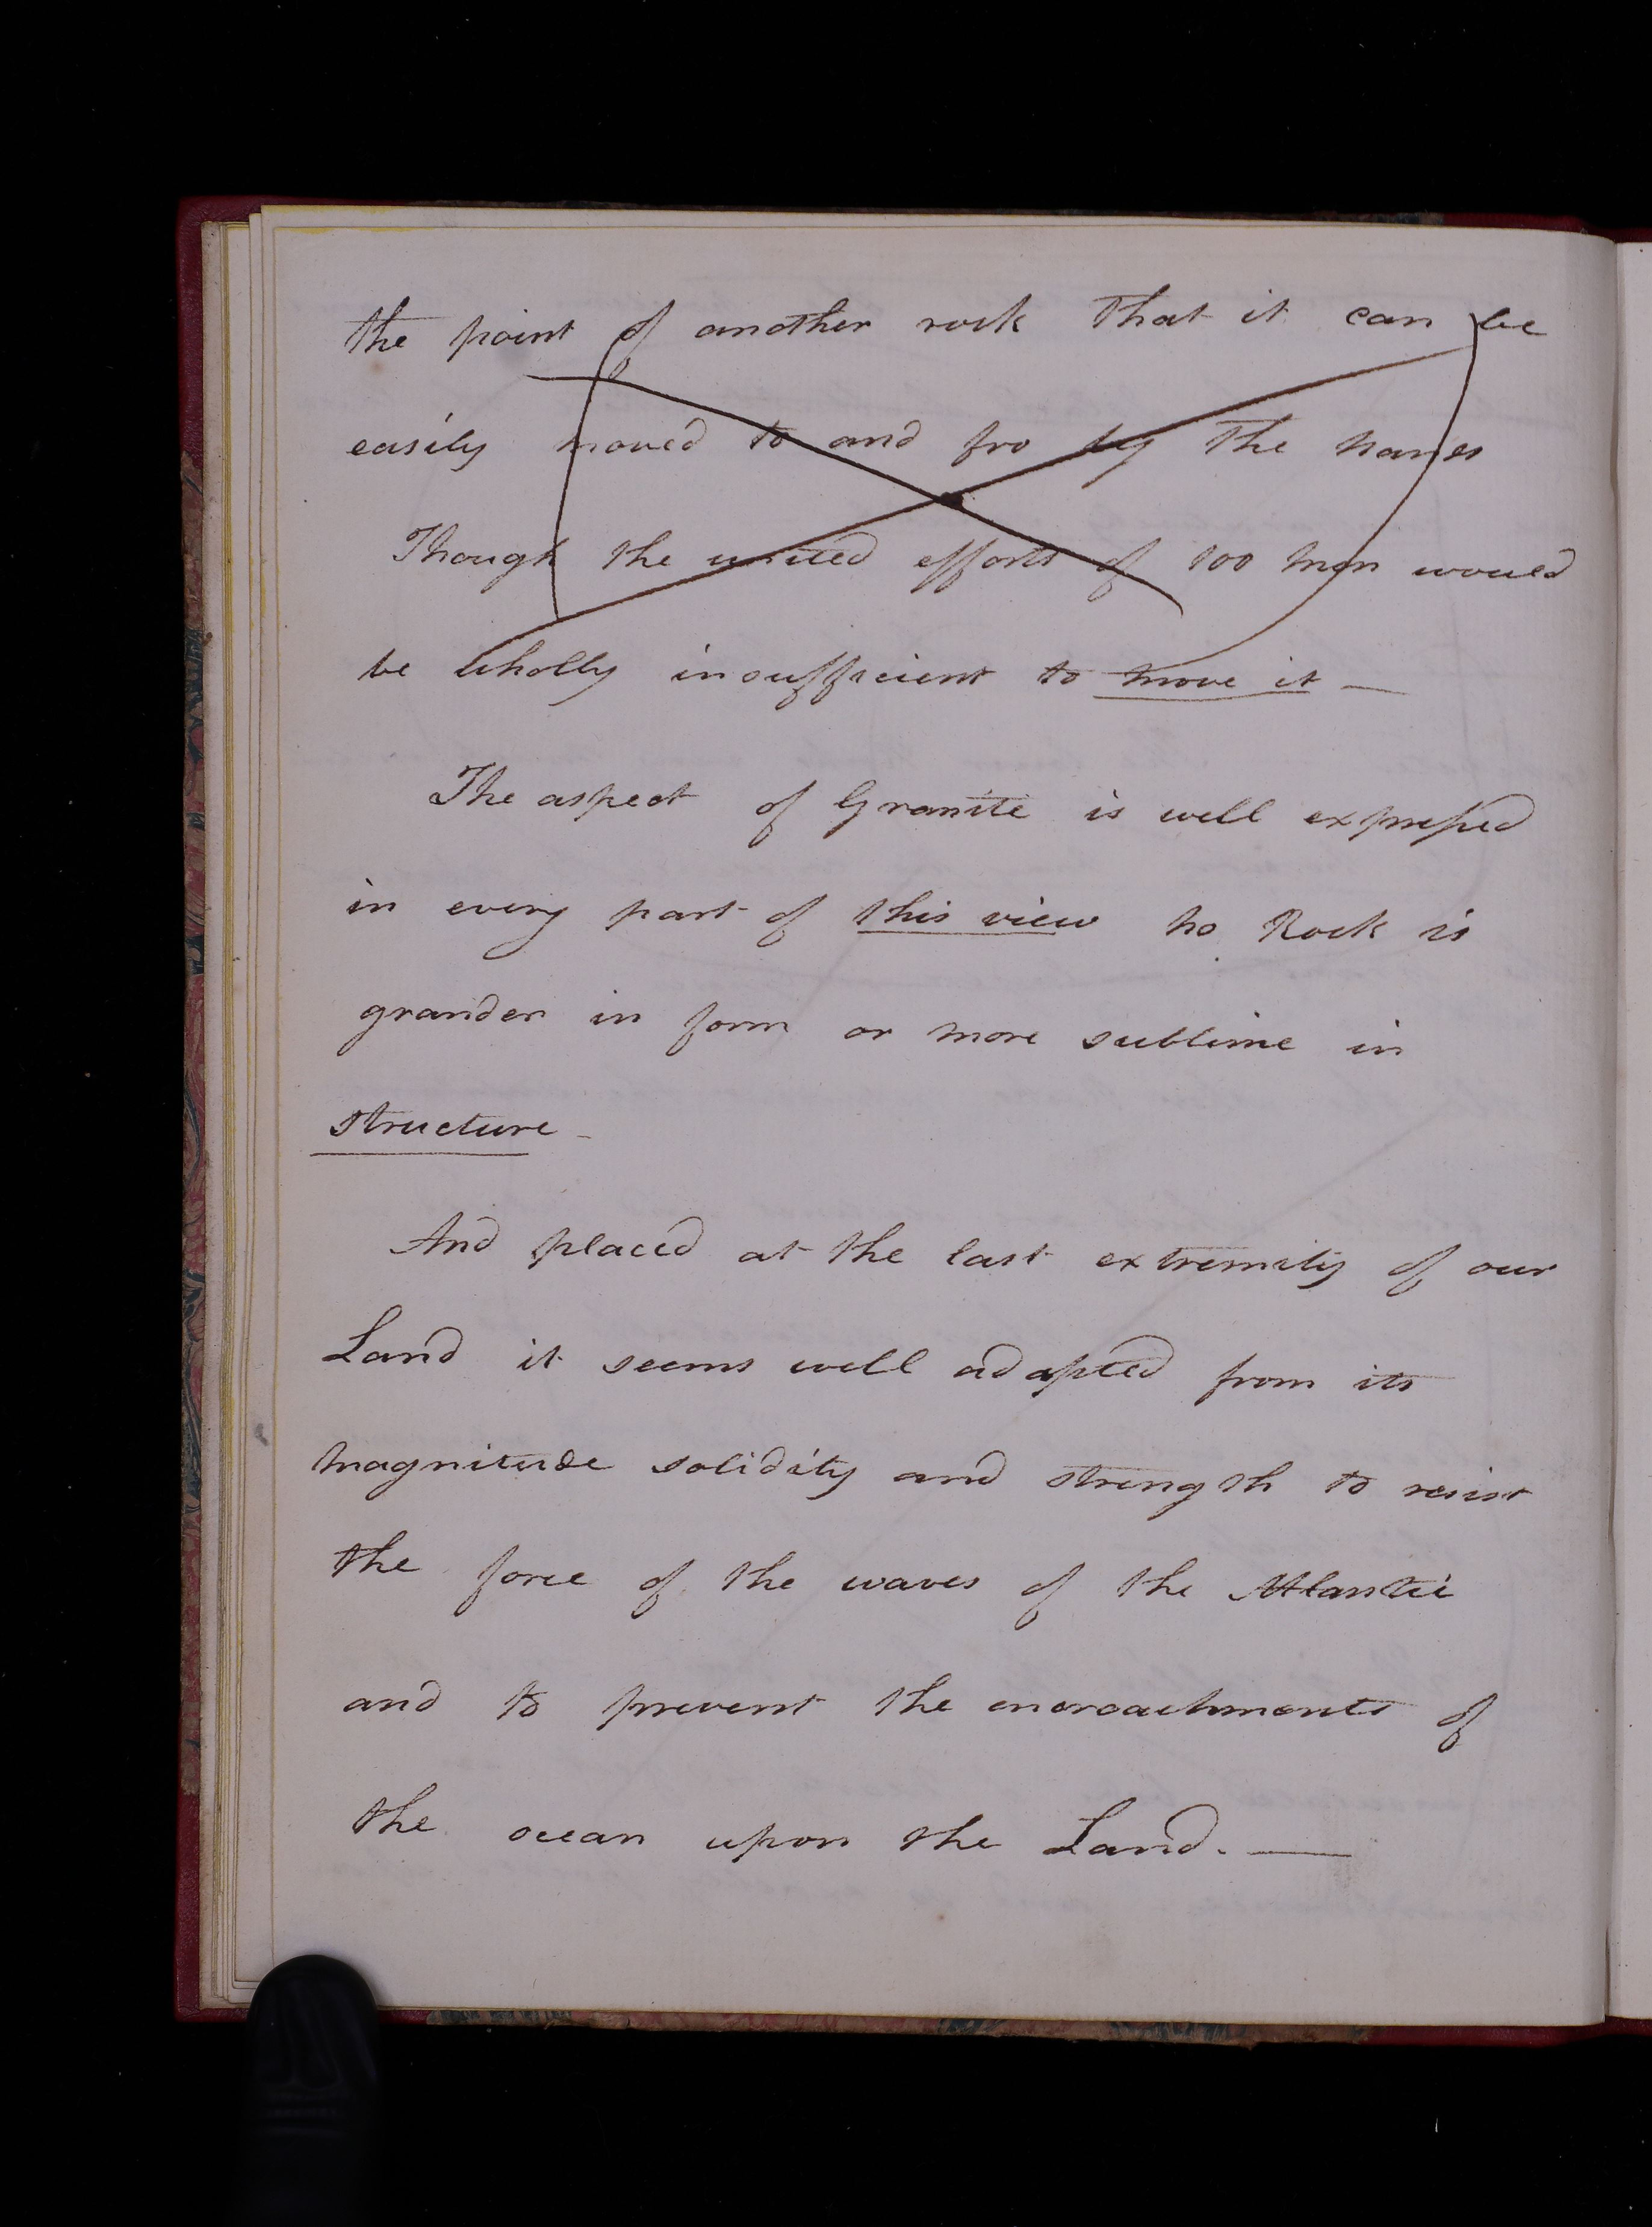 the point of another rock that it can be
easily moved to and fro by the hands
Though the united efforts of 100 men would
be wholly insufficient to move it —
The aspect of Granite is well expressed
in every part of this view no Rock is
grander in form or more sublime in
structure –
And placed at the last extremity of our
Land it seems well adapted from its
magnitude solidity and strength to resist
the force of the waves of the Atlantic
and to prevent the encroachments of
the ocean upon the Land. —